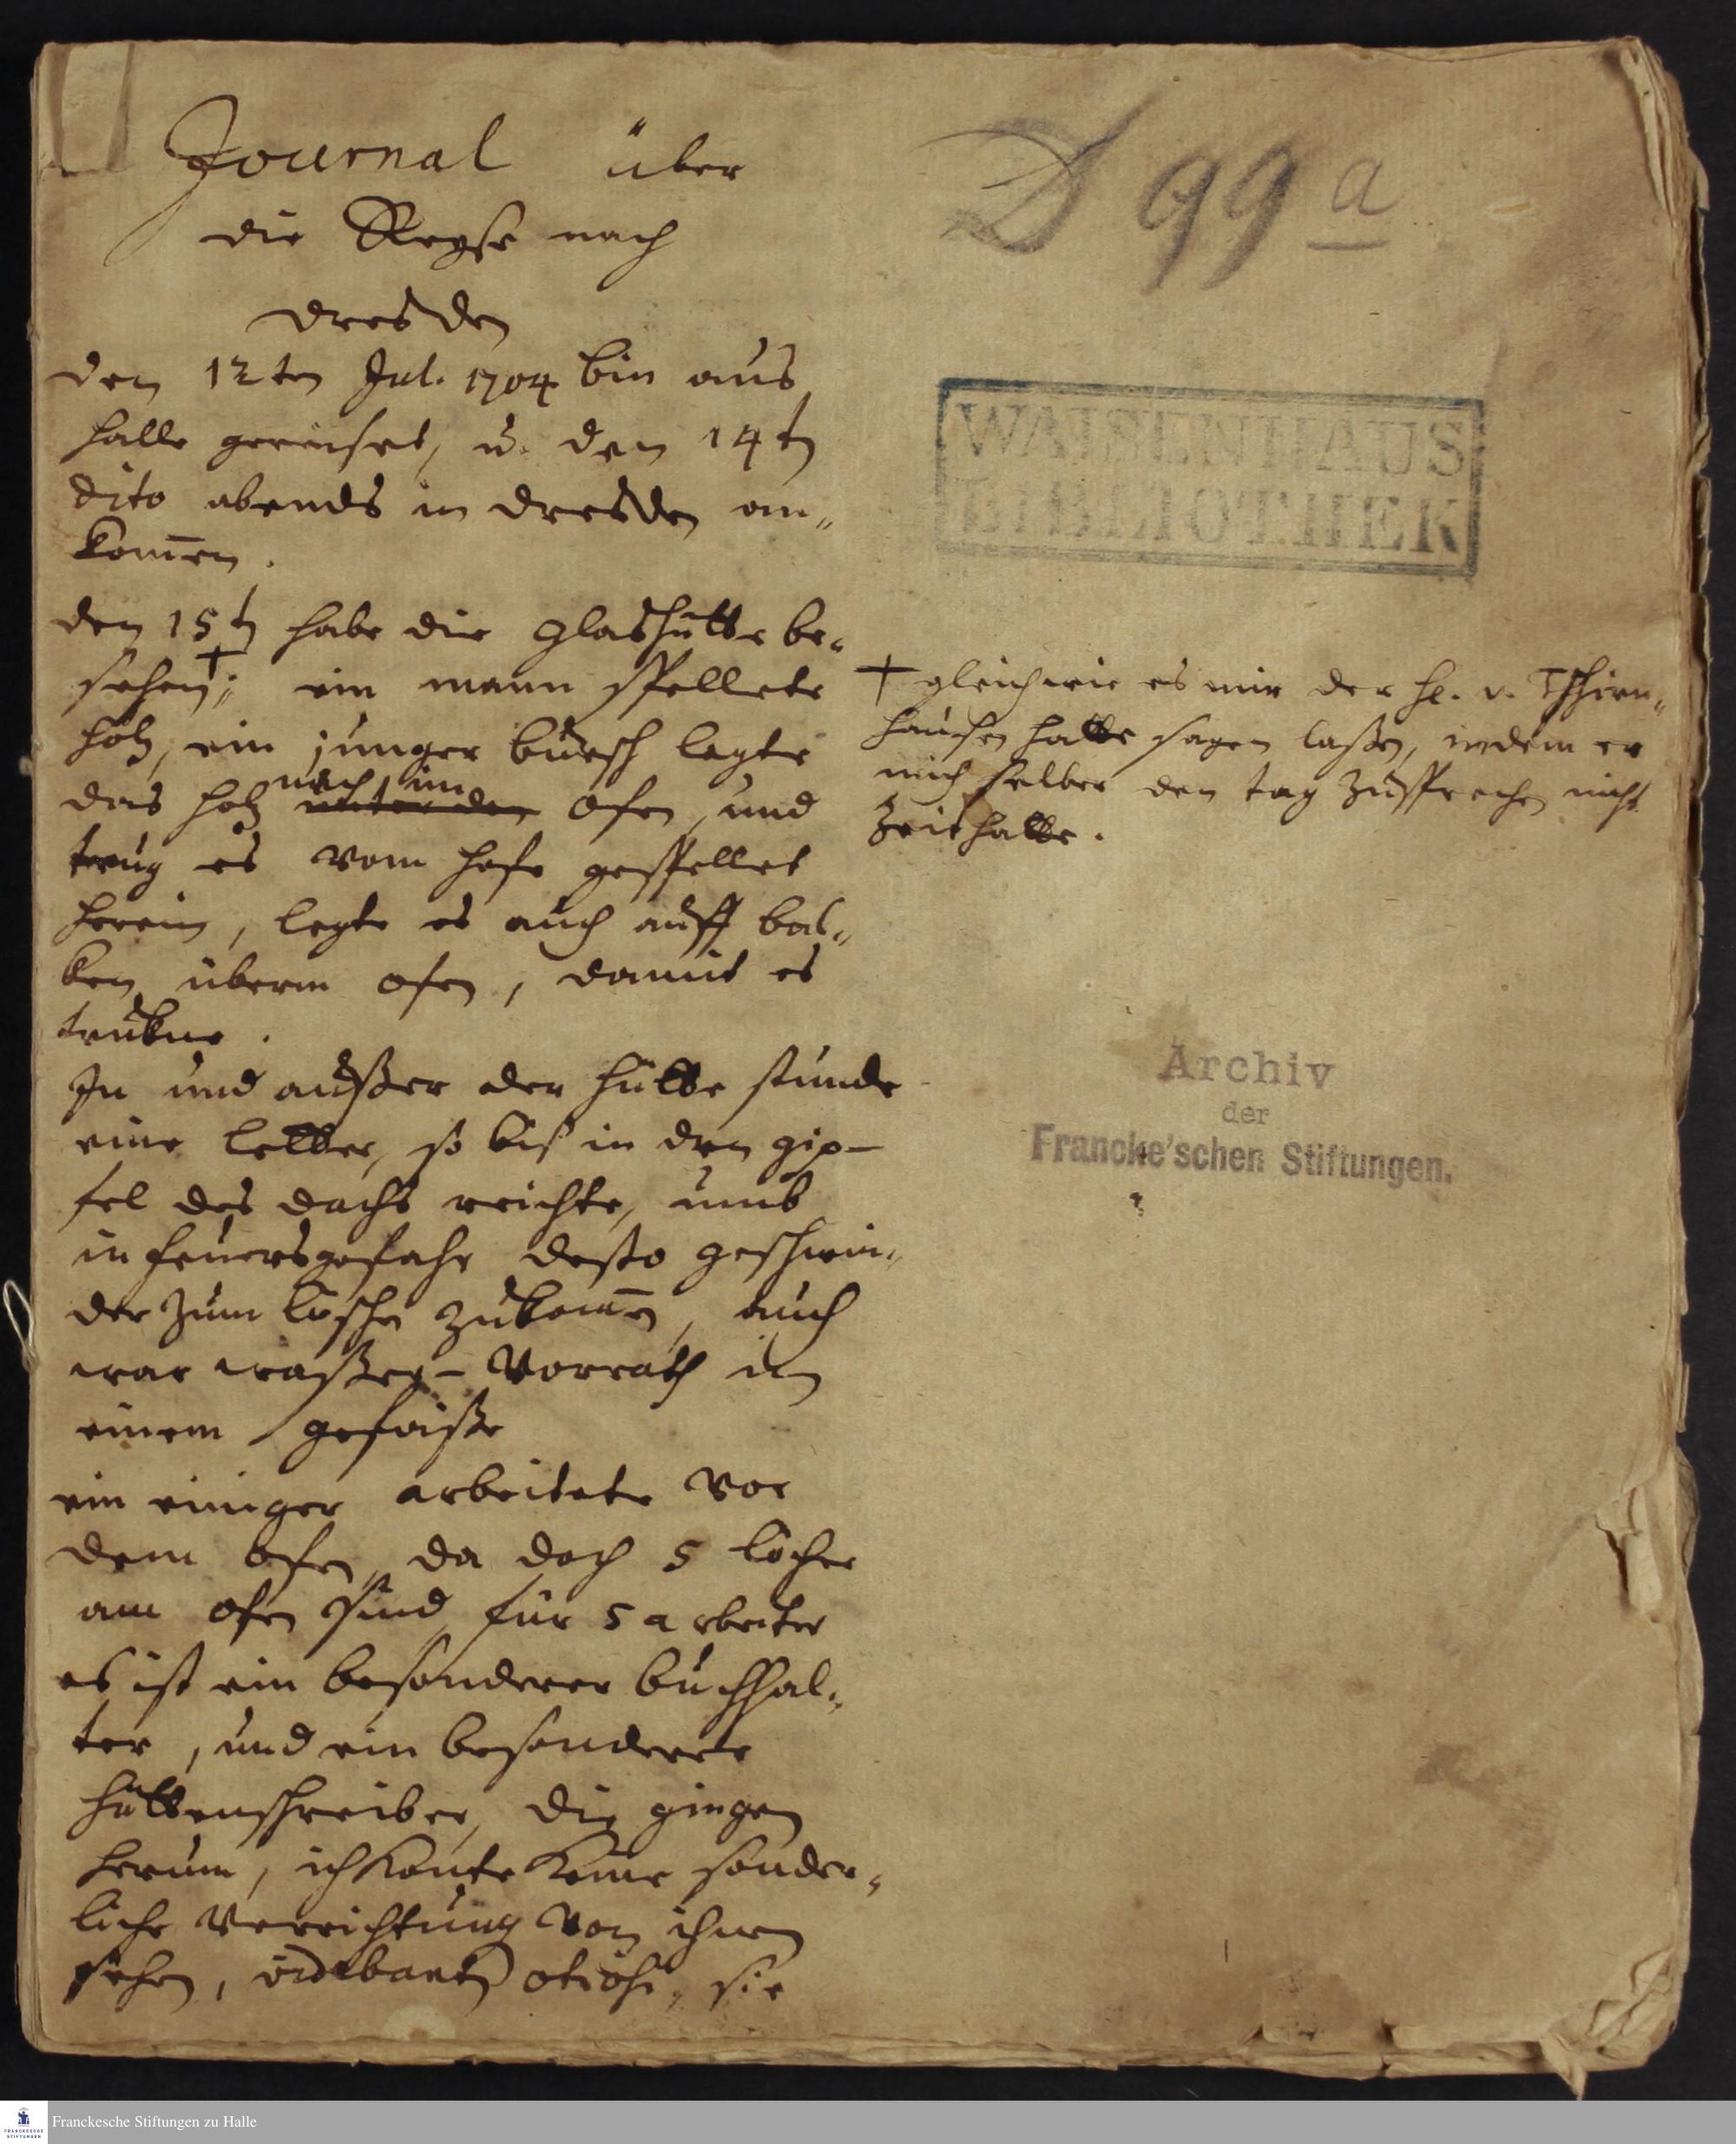 Journal über
die Reyse nach
Dresden
den 12ten Jul. 1704 bin aus
Halle gereiset, u. den 14tn
dito abends in Dresden an„
kom̄en.
den 15tn habe die glashütte be„
sehen;† ein mann spellete
holtz, ein junger bursch legte
nach im
das holtz unter den ofen, und
trug es vom hofe gespellet
herein, legte es auch auff bal„
ken überm ofen, damit es
trukne.
In und außer der hütte stunde
eine letter, so biß in den gip-
fel des dachs reichte, umb
in feuersgefahr desto geschwin„
der zum löschen zukom̄en, auch
war waßer-Vorrath in
einem gefäße
ein einiger arbeitete vor
dem ofen, da doch 5 löcher
am ofen sind für 5 arbeiter
es ist ein besonderer buchhal„
ter, und ein besonderer
hüttenschreiber, die gingen
herum, ich konte keine sonder„
liche Verrichtung von ihnen
sehen, videbantur otiosi, sie
† gleichwie es mir der H. v. Tschirn„
hausen hatte sagen laßen, indem er
mich selber den tag zusprechen nicht
Zeit hatte.
D 99 a
WAISENHAUS
BIBLIOTHEK
Archiv
der
Francke'schen Stiftungen.
FRANCKESCHE
STIFTUNGEN
Franckesche Stiftungen zu Halle